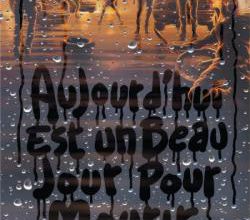 Aujourd'hui
Est un Beau
Jour Pour
Mourir